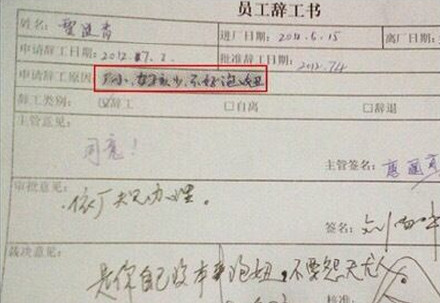 员工辞工书
姓名: 进厂日期: 离厂
申请辞工日期: 2012.7.2. 批准辞工日期: 2012.7.4
申请辞工原因: 厂小、女孩少、不好泡妞
辞工类别: 辞工 □自离 □辞退
主管意见:
同意!
主管签名:
审批意见:
依厂规办理。
签名:
裁决意见:
是你自己没本事泡妞,不要怨天尤人
核准